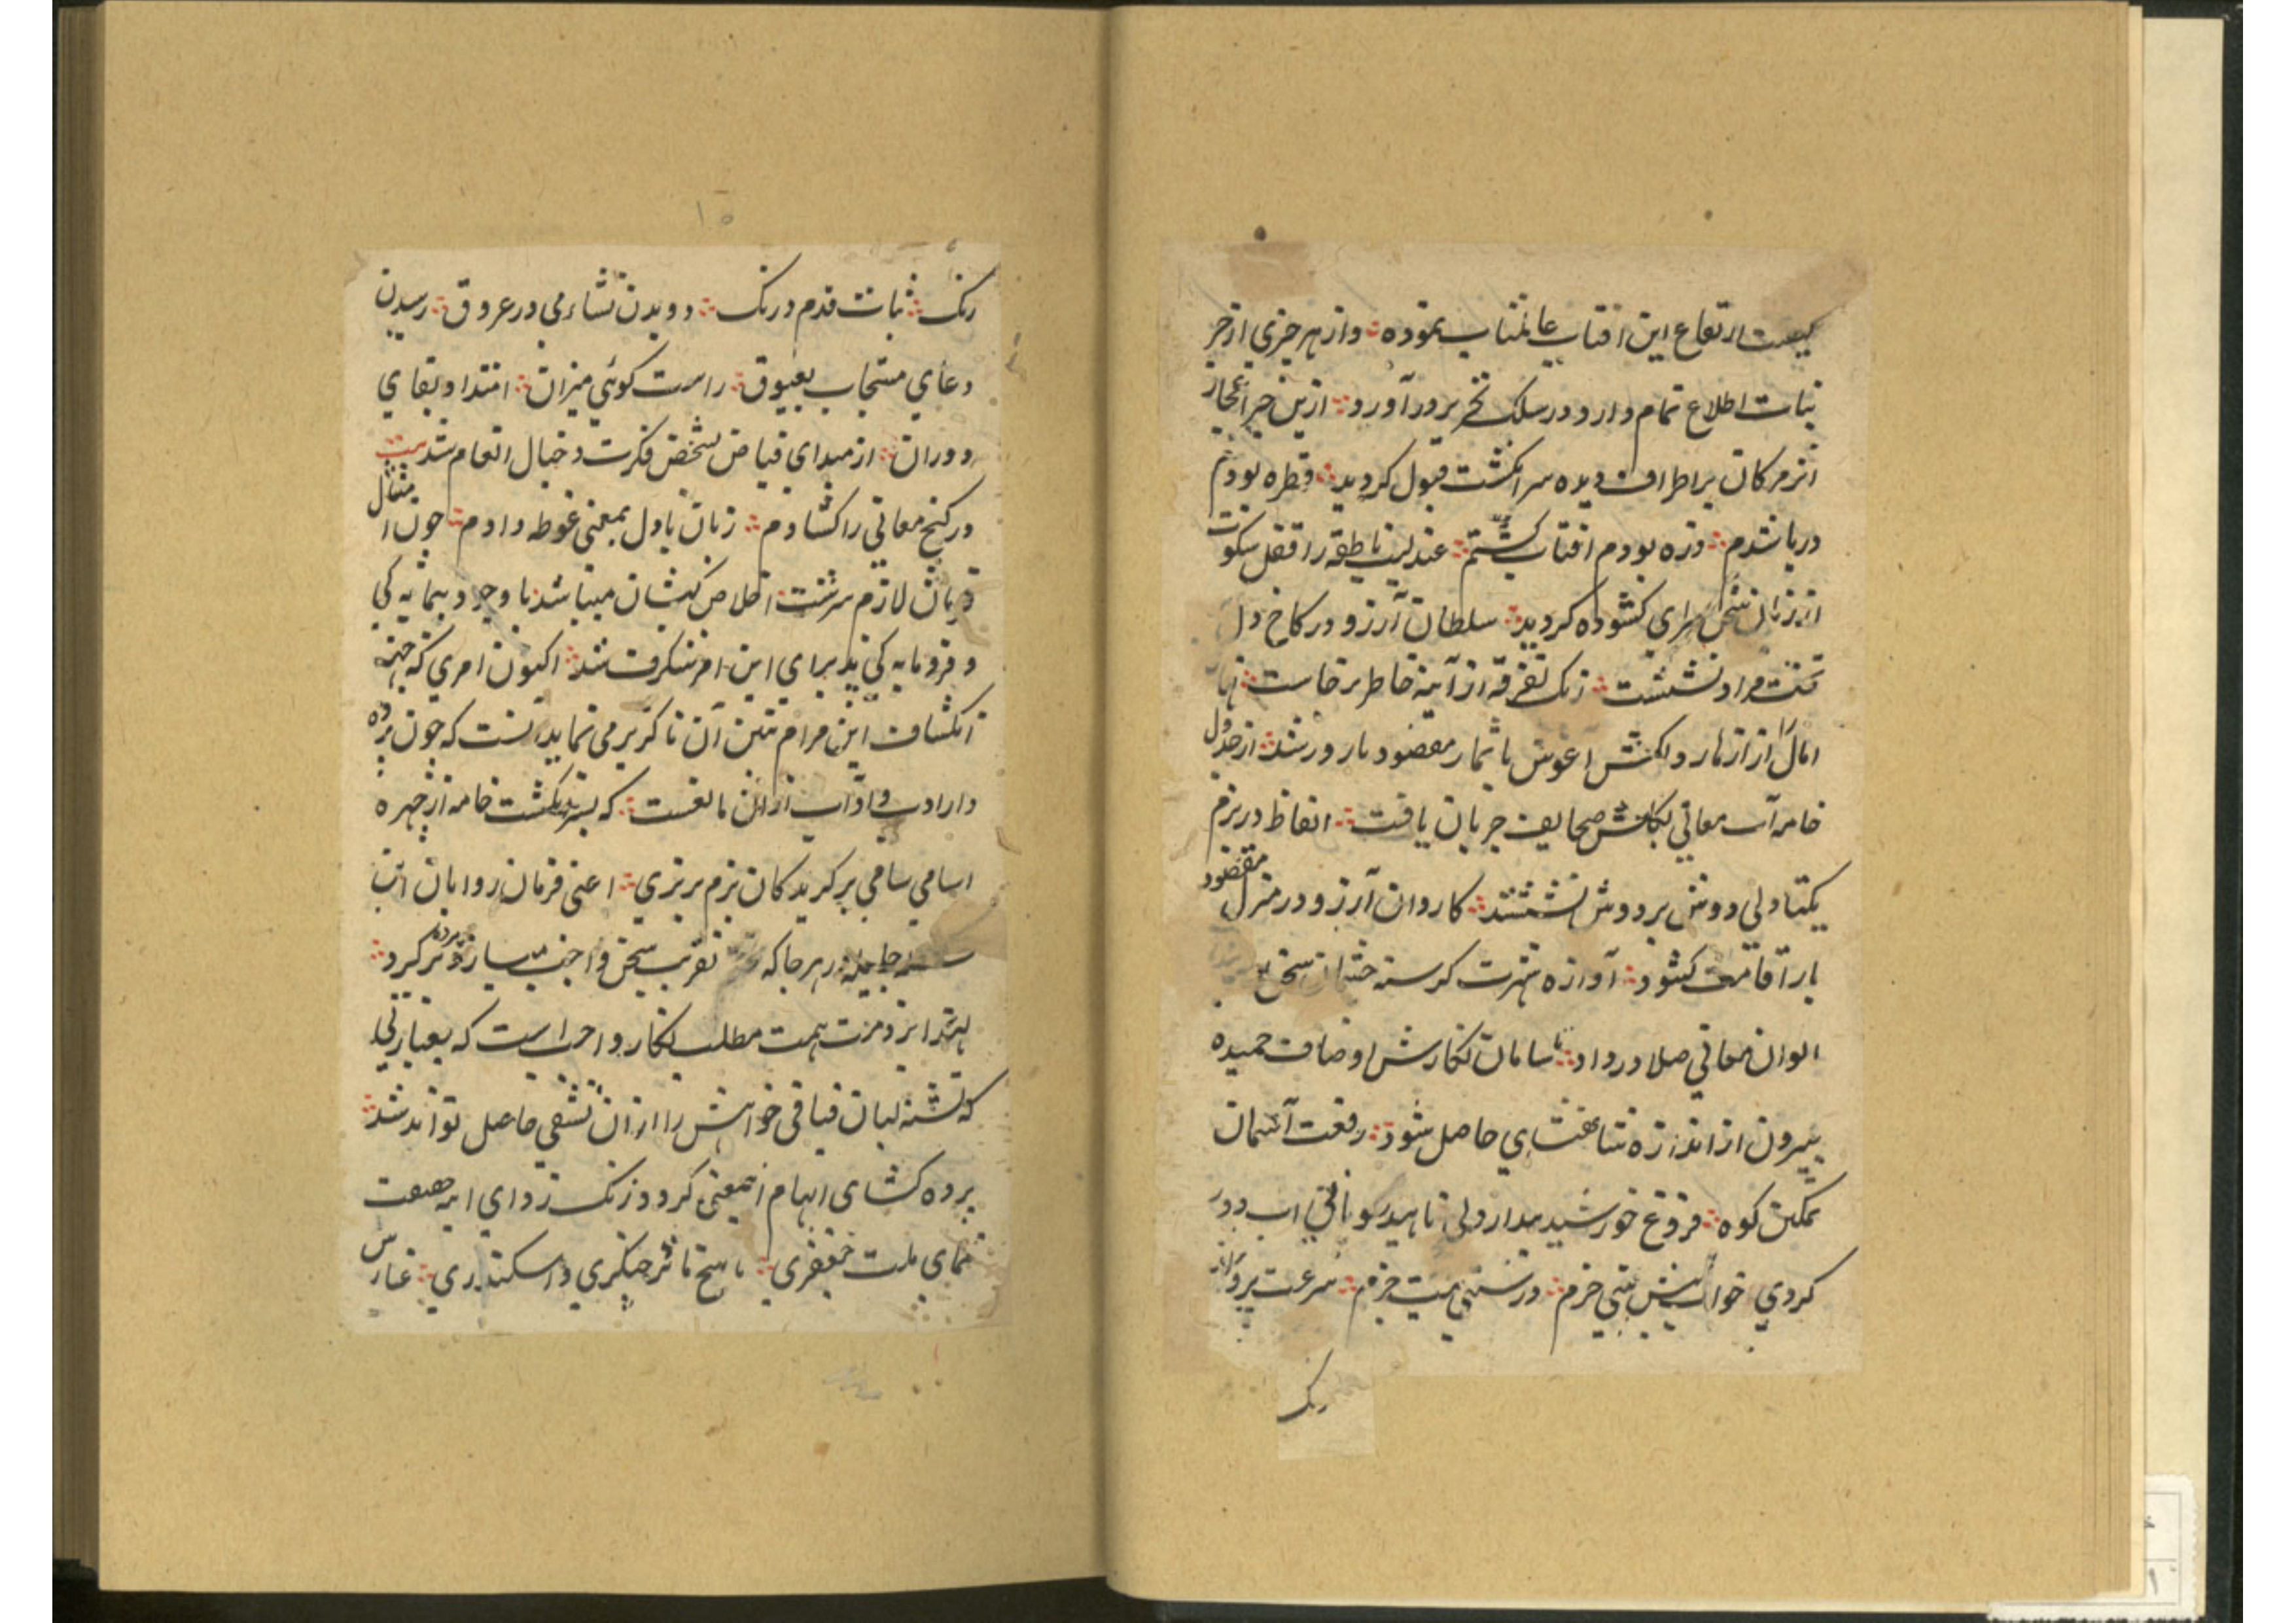 ارتفاع این افتاب عالمتاب نموده واز هر چیزی از خبر
نبات اطلاع تمام دارد و در سلک تحریر در آورد ازین خبر
از مژکان بر اطراف دیده سر انکشت قبول کردید قطره بودم
دریا شدم ذره بودم افتاب کشتم عندلیب ناطقه را قفل سکوت
از زبان سخن سرای کشوده کردید سلطان آرزو در کاخ دل
تخت مراد نشست زنک تفرقه از آینه خاطر برخاست
امال از ازهار دلکش اغوش با ثمار مقصود بارور شد از جدول
خامه آب معانی بکلشن صحایف جریان یافت الفاظ در بزم
یکتا دلی دوش بر دوش نشستند کاروان آرزو در منزل مقصود
بار اقامت کشود آوازه شهرت کرسنه چشمان سخن
الوان معانی صلا در داد تا سامان نکارش اوصاف حمیده
بیرون از اندازه شناختهای حاصل شود رفعت آسمان
تمکین کوه فروغ خورشید مدارولی ناهید
کردی خواهش بینی خرم درستی نیت جزم سرعت پرواز
رنک
۱۵
رنک ثبات قدم درنک دویدن نشاء می در عروق رسیدن
دعای مستجاب بعیوق راست کوئی میزان امتداد بقای
دوران از مبدای فیاض بشخص فکرت و خیال انعام شد بیت
در کنج معانی را کشادم زبان با دل بمعنی غوطه دادم چون امتثال
فرمان لازم سرشت اخلاص کیشان میباشد با وجود بیمایه کی
و فرومایه کی پذیرای این امر شکرف شد اکنون امری که جهته
انکشاف این مرام تبیین آن ناکزیر می نماید انست که چون پرده
دار ادب و اداب ازان مانعست که بسر انکشت خامه از چهره
اسامی سامی بر کزیدکان بزم برتری اعنی فرمان روایان
هر جا که تقریب سخن واجب سازد
لهذا بر ذمت همت مطلب نکار واجب است که بعبارتی
که تشنه لبان فیافی خواهش را ازان تشفی حاصل تواند شد
پرده کشای ابهام اینمعنی کردد زنک زدای
نمای ملت جعفری ناسخ ماثر جنکیزی و اسکندری غارس